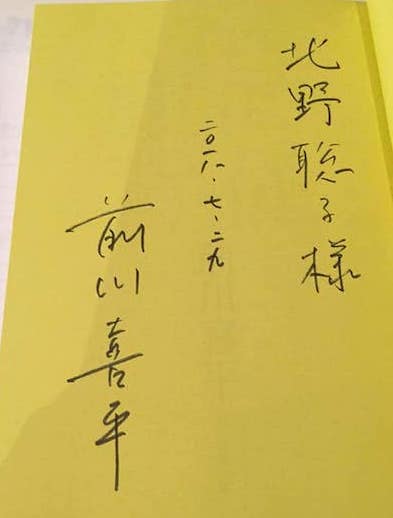 北野聡子様
二〇一八.七.二九
前川喜平